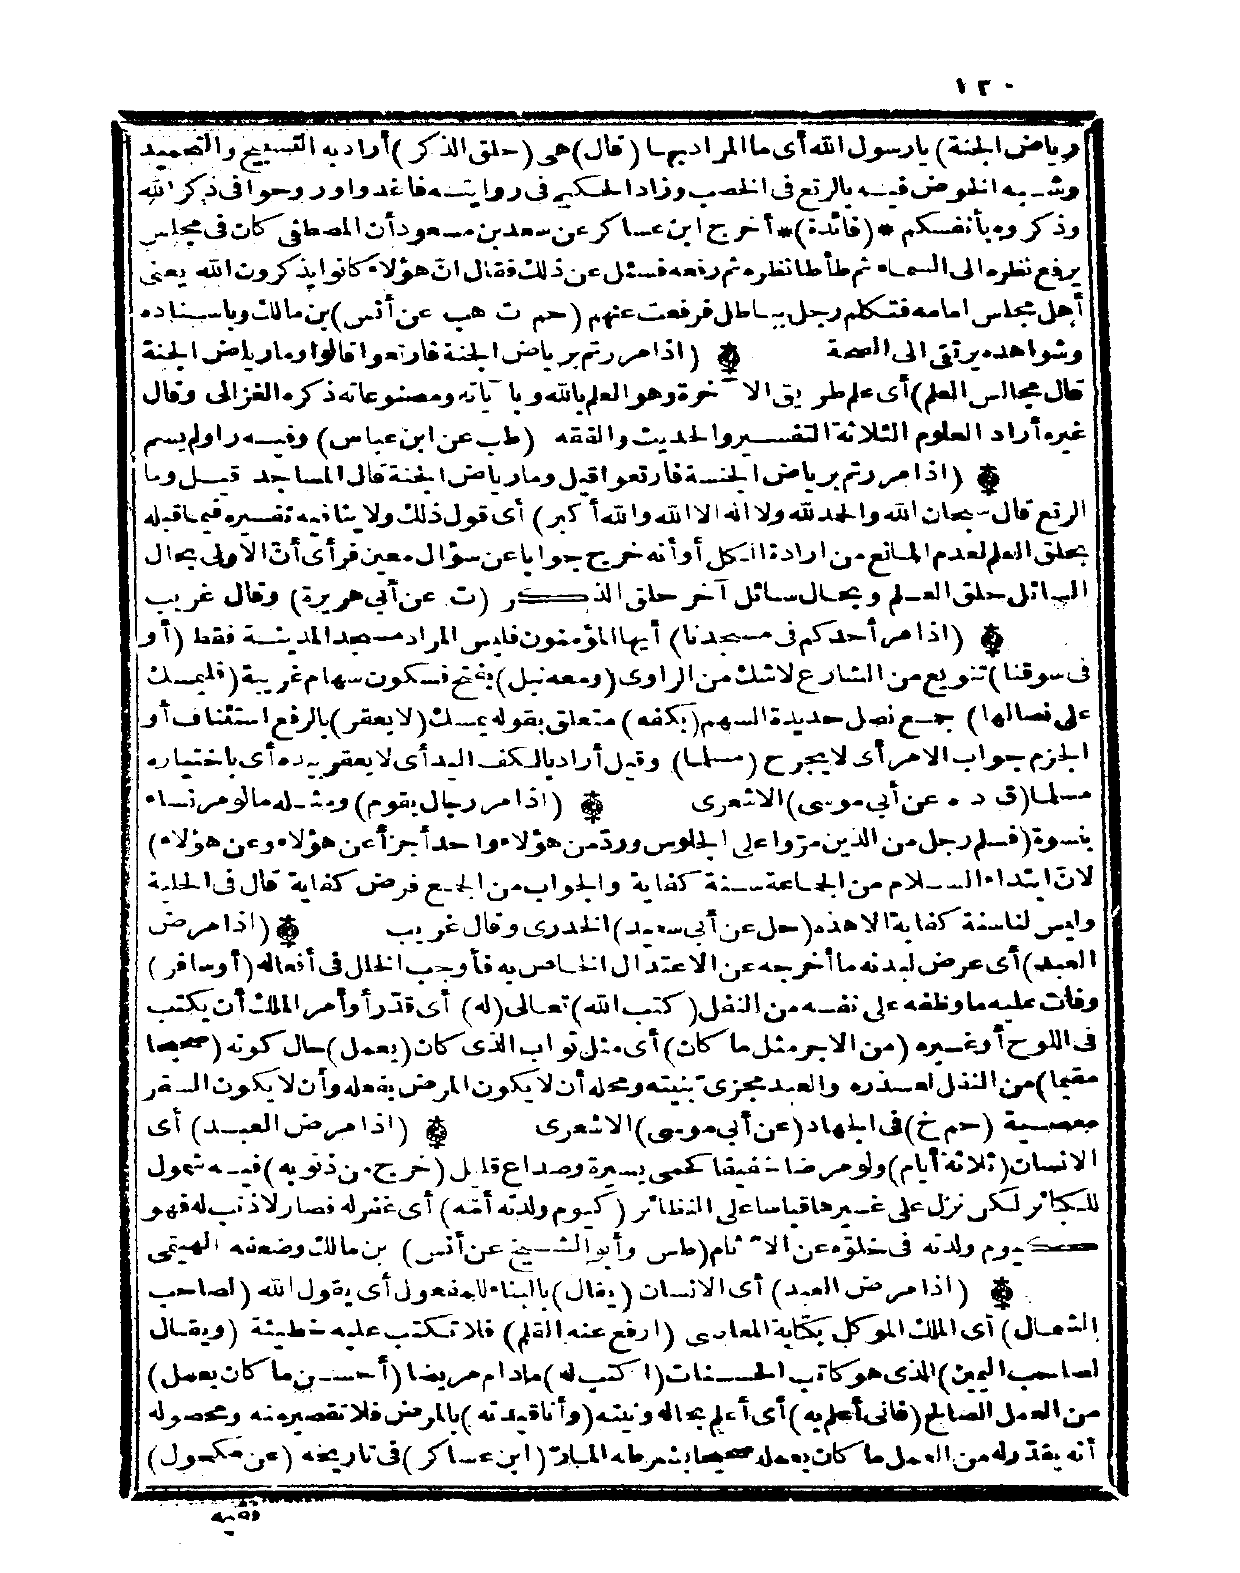 ١٣٠
رياض الجنة) يارسول الله أى ما المراد بها (قال) هى (حلق الذكر) أراد به التسبيح والتحميد
وشبه الخوض فيه بالرتع فى الخصب وزاد الحكيم فى روايته فاغدوا وروحوا فى ذكر الله
وذكروه بأنفسكم *(فائدة)* أخرج ابن عساكر عن سعد بن مسعود أن المصطفى كان فى مجلس
يرفع نظره الى السماء ثم طأطأ نظره ثم رفعه فسئل عن ذلك فقال ان هؤلاء كانوا يذكرون الله يعنى
أهل مجلس امامه فتكلم رجل بباطل فرفعت عنهم (حم ت هب عن أنس) بن مالك وباسناده
وشواهده يرتقى الى الصحة (اذا مررتم برياض الجنة فارتعوا قالوا وما رياض الجنة
قال مجالس العلم) أى علم طريق الآخرة وهو العلم بالله وبآياته ومصنوعاته ذكره الغزالى وقال
غيره أراد العلوم الثلاثة التفسير والحديث والفقه (طب عن ابن عباس) وفيه راو لم يسم
(اذا مررتم برياض الجنة فارتعوا قيل وما رياض الجنة قال المساجد قيل وما
الرتع قال سبحان الله والحمد لله ولا اله الا الله والله أكبر) أى قول ذلك ولا ينافيه تفسيره فيما قبله
بحلق العلم لعدم المانع من ارادة الكل أو أنه خرج جوابا عن سؤال معين فرأى أن الاولى بحال
السائل حلق العلم وبحال سائل آخر حلق الذكر (ت عن أبى هريرة) وقال غريب
(اذا مر أحدكم فى مسجدنا) أيها المؤمنون فليس المراد مسجد المدينة فقط (أو
فى سوقنا) تنويع من الشارع لا شك من الراوى (ومعه نبل) بفتح فسكون سهام غريبة (فليمسك
على نصالها) جمع نصل حديدة السهم (بكفه) متعلق بقوله يمسك (لا يعقر) بالرفع استئناف أو
الجزم جواب الامر أى لا يجرح (مسلما) وقيل أراد بالكف اليد أى لا يعقر بيده أى باختياره
مسلما (ق د ه عن أبى موسى) الاشعرى (اذا مر رجال بقوم) ومثله ما لو مر نساء
بنسوة (فسلم رجل من الذين مروا على الجلوس ورد من هؤلاء واحد أجزأ عن هؤلاء وعن هؤلاء)
لان ابتداء السلام من الجماعة سنة كفاية والجواب من الجمع فرض كفاية قال فى الحلية
وليس لنا سنة كفاية الا هذه (حل عن أبى سعيد) الخدرى وقال غريب (اذا مرض
العبد) أى عرض لبدنه ما أخرجه عن الاعتدال الخاص به فأوجب الخلل فى أفعاله (أو سافر)
وفات عليه ما وظفه على نفسه من النفل (كتب الله) تعالى (له) أى قدر أو أمر الملك أن يكتب
فى اللوح أو غيره (من الاجر مثل ما كان) أى مثل ثواب الذى كان (يعمل) حال كونه (صحيحا
مقيما) من النفل لعذره والعبد مجزى بنيته ومحله أن لا يكون المرض بفعله وأن لا يكون السفر
معصية (حم خ) فى الجهاد (عن أبى موسى) الاشعرى (اذا مرض العبد) أى
الانسان (ثلاثة أيام) ولو مرضا خفيفا كحمى يسيرة وصداع قليل (خرج من ذنوبه) فيه شمول
للكبائر لكن نزل على غيرها قياسا على النظائر (كيوم ولدته أمه) أى غفر له فصار لا ذنب له فهو
كيوم ولدته فى خلوه عن الآثام (طس وأبو الشيخ عن أنس) بن مالك وضعفه الهيتمى
(اذا مرض العبد) أى الانسان (يقال) بالبناء للمفعول أى يقول الله (لصاحب
الشمال) أى الملك الموكل بكتابة المعاصى (ارفع عنه القلم) فلا تكتب عليه خطيئة (ويقال
لصاحب اليمين) الذى هو كاتب الحسنات (اكتب له) مادام مريضا (أحسن ما كان يعمل)
من العمل الصالح (فانى أعلم به) أى أعلم بحاله ونيته (وأنا قيدته) بالمرض فلا تقصير منه ومحصوله
أنه يقدر له من العمل ما كان يعمله صحيحا بشرطه المار (ابن عساكر) فى تاريخه (عن مكحول)
فقيه